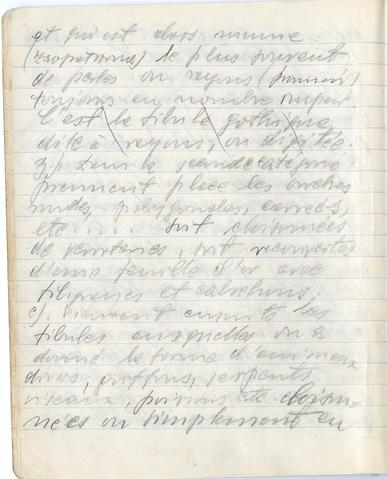 et qui est alors munie
le plus souvent
de perles ou rayons
toujours en nombre impair.
C'est la fibule gothique
dite à rayons, ou digitée.
Dans la seconde catégorie
prennent place les broches
rondes, polygonales, carrées,
etc.... soit cloisonnées
de verroteries, soit recouvertes
d'une feuille d'or avec
filigranes et cabochons;
c). Viennent ensuite les
fibules auxquelles on a
donné la forme d'animaux
divers, griffons, serpents
oiseaux, poissons etc. cloison-
nées ou simplement en